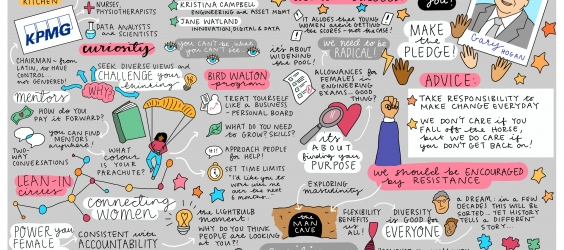 KITCHEN
KPMG
NURSES,
PHYSIOTHERAPISTS
DATA ANALYSTS
and SCIENTISTS
KRISTINA CAMPBELL
ENGINEERING and ASSET MGMT
JANE WAYLAND
INNOVATION, DIGITAL & DATA
IT ALUDES that YOUNG
WOMEN aren't GETTING
the SCORES - not the CASE!
you!
MAKE
the
PLEDGE!
Gary
HOGAN
curiosity
you can't be what
you can't see
it's ABOUT
WIDENING
the POOL!
we need to be
RADICAL!
CHAIRMAN - from
LATIN, to HAVE
CONTROL
not GENDERED!
SEEK DIVERSE VIEWS and
CHALLENGE your
thinking
WHY?
BIRD WALTON
program
ALLOWANCES for
FEMALES in
ENGINEERING
EXAMS... GOOD
THING?
ADVICE:
TAKE RESPONSIBILITY to
MAKE CHANGE EVERYDAY
WE DON'T CARE if YOU
FALL off the HORSE,
but WE DO CARE if
you DON'T GET BACK on!
mentors
HOW do YOU
PAY it FORWARD?
you can FIND
MENTORS
anywhere!
TWO-
WAY
CONVERSATIONS
WHAT
COLOUR is
YOUR
PARACHUTE?
TREAT YOURSELF
like a BUSINESS
- PERSONAL BOARD
WHAT DO YOU NEED
to GROW? SKILLS?
APPROACH PEOPLE
for HELP!
SET TIME LIMITS
"I'd like you to
work with me
over the next
6 months..."
it's
ABOUT
finding your
PURPOSE
EXPLORING
masculinity
we should be ENCOURAGED
by RESISTANCE
LEAN-IN
circles
connecting
WOMEN
the LIGHTBULB
moment!
the
MAN
CAVE
FLEXIBILITY
BENEFITS
us
ALL!
DIVERSITY
is GOOD for
EVERYONE
a DREAM: in a FEW
DECADES THIS will BE
SORTED... YET HISTORY
TELLS a DIFFERENT
STORY...
POWER you
FEMALE
CONSISTENT with
ACCOUNTABILITY
WHY DO YOU THINK
PEOPLE ARE LOOKING
AT YOU?!